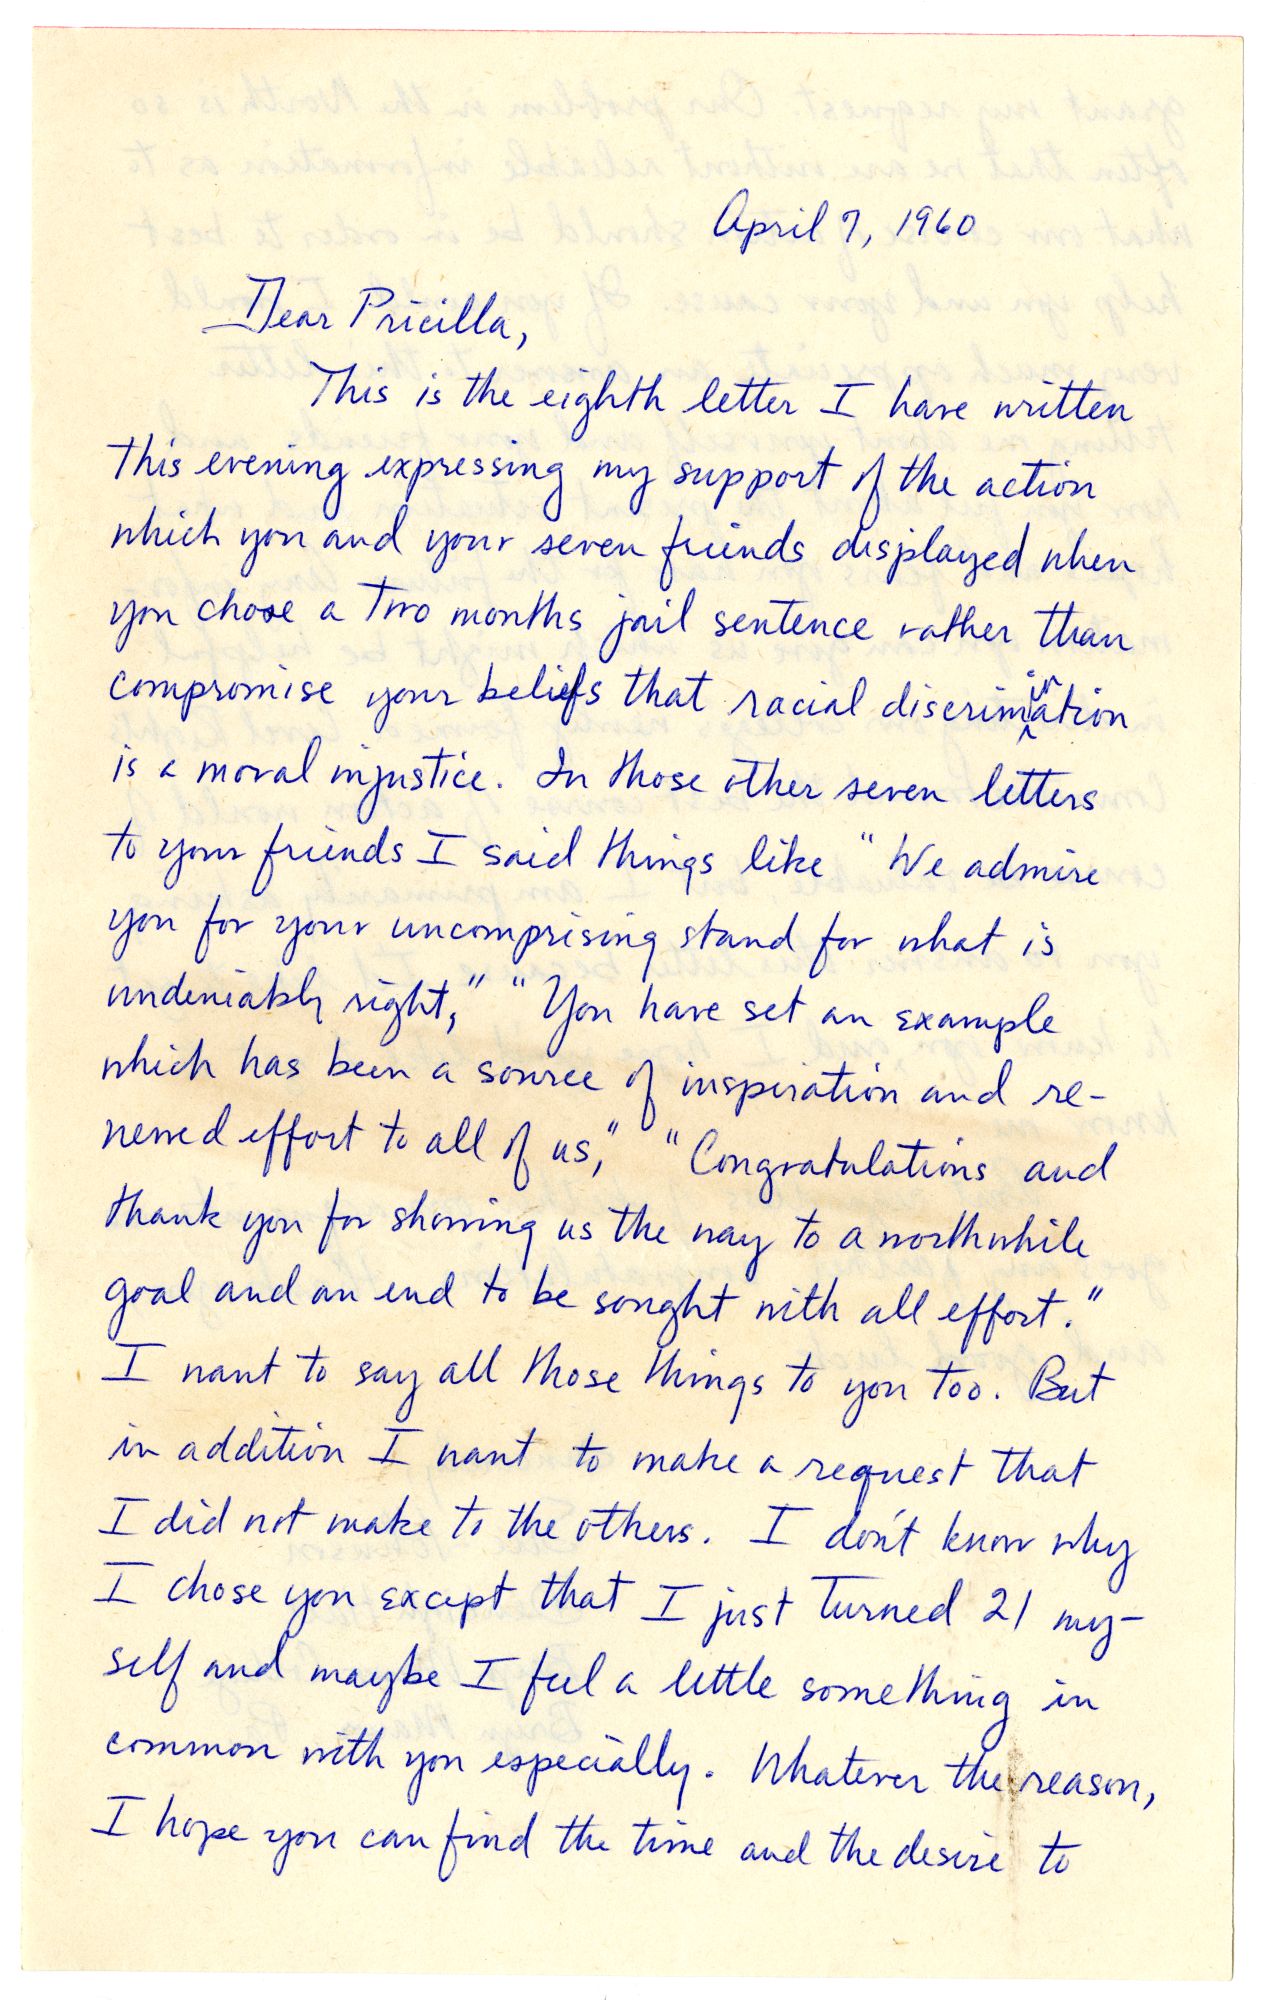 April 7, 1960
Dear Pricilla,
This is the eighth letter I have written
this evening expressing my support of the action
which you and your seven friends displayed when
you chose a two months jail sentence rather than
compromise your beliefs that racial discrimination
is a moral injustice. In those other seven letters
to your friends I said things like "We admire
you for your uncomprising stand for what is
undeniably right," "You have set an example
which has been a source of inspiration and re-
newed effort to all of us," "Congratulations and
thank you for showing us the way to a worthwhile
goal and an end to be sought with all effort."
I want to say all those things to you too. But
in addition I want to make a request that
I did not make to the others. I don't know why
I chose you except that I just turned 21 my-
self and maybe I feel a little something in
common with you especially. Whatever the reason,
I hope you can find the time and the desire to